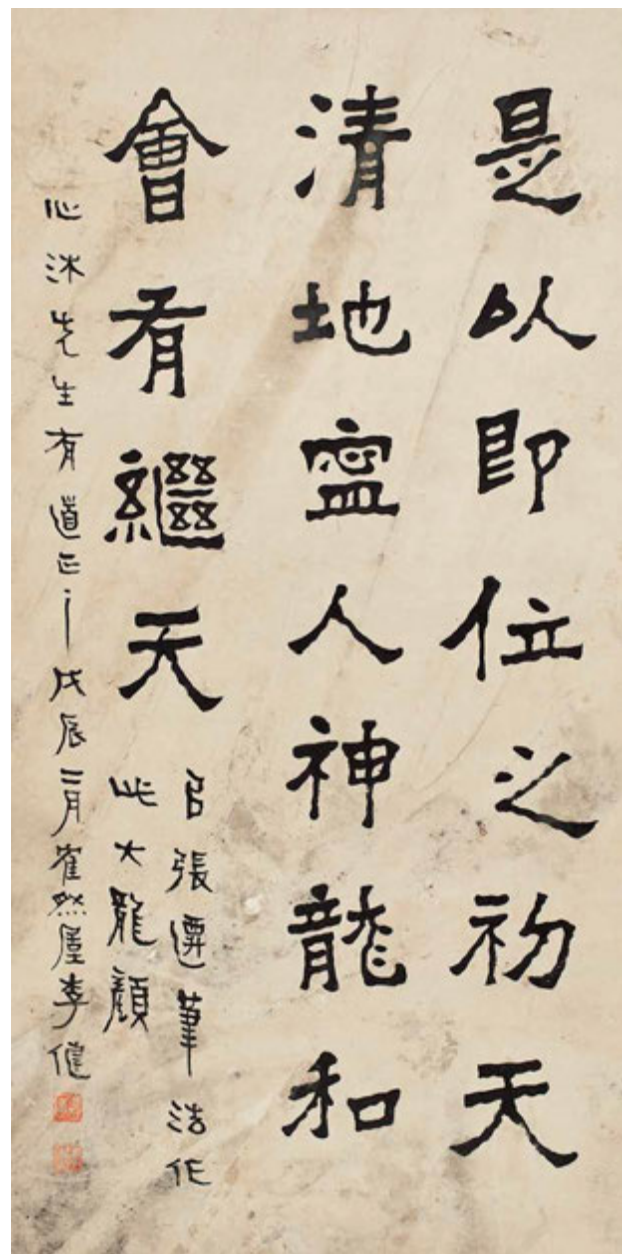 是以即位之初天
清地寧人神龍和
會有繼天
㠯張遷筆法作
此大龍顏
心沐先生有道正之戊辰二月隺然屋李健